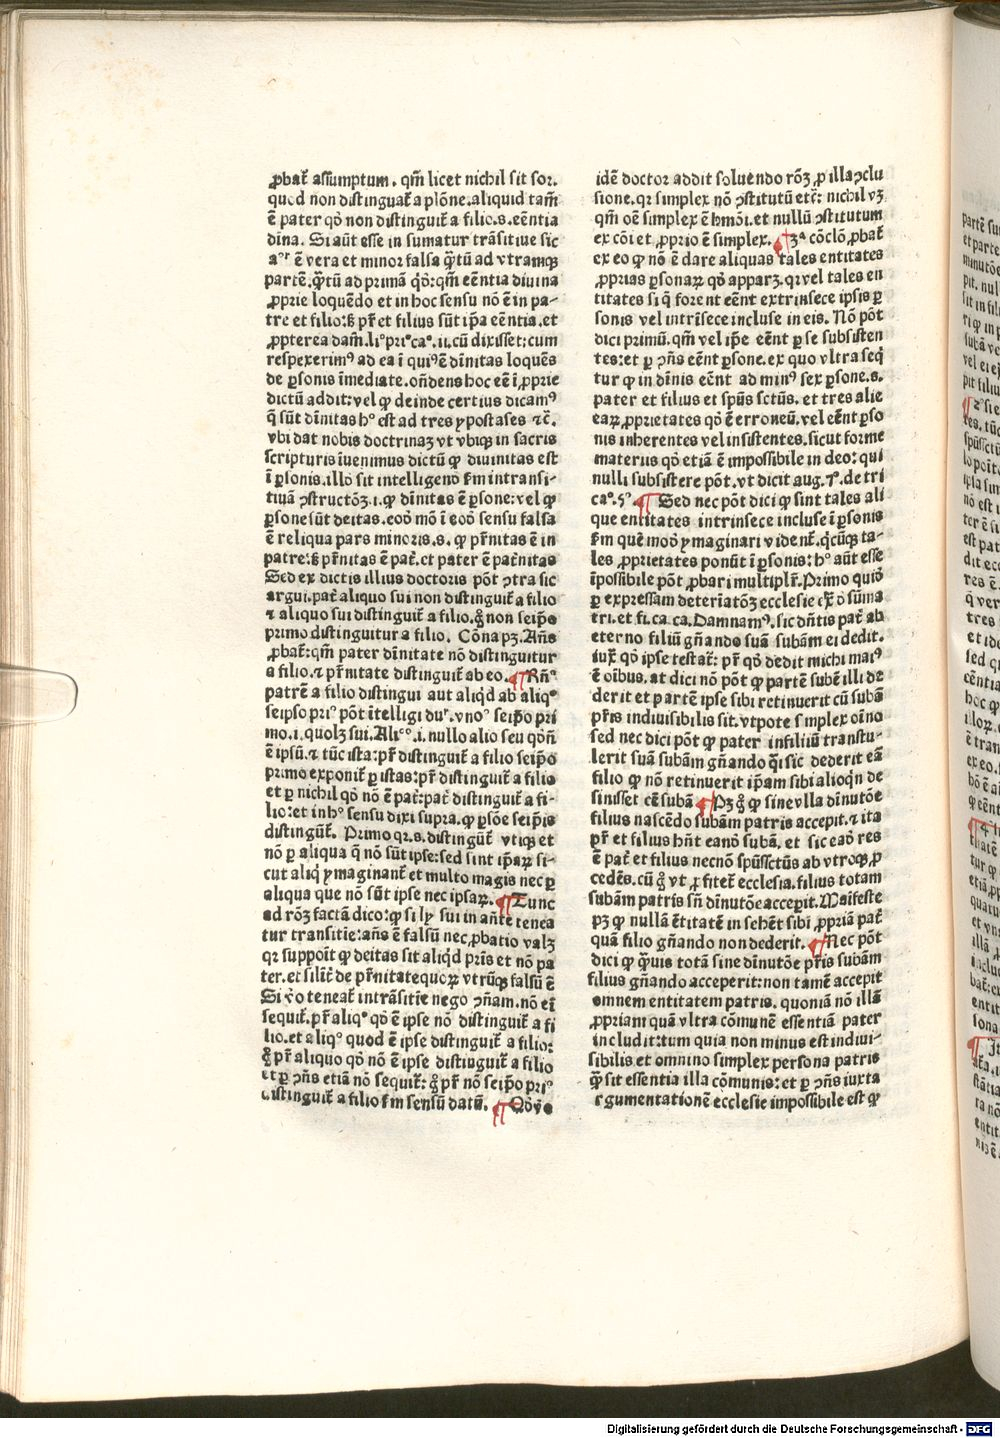 ꝓbat᷑ assumptum. qm̄ licet nichil sit sor.
quod non distinguat᷑ a plōne. aliquid tam̄
ē pater qō non distinguit᷑ a filio. s. eēntia
dīna. Si aūt esse in sumatur trāsitiue sic
ē vera et minor falsa q̄tū ad vtramqꝫ
partē. q̄tū ad primā qm̄ eēntia diuina
ꝓprie loquēdo et in hoc sensu nō ē in pa-
tre et filio: ꝫ pr̄ et filius sūt ip̄a eēntia. et
ꝓpterea dam̄. li° pri° ca°. ii. cū dixisset: cum
respexerimꝰ ad ea ī quiꝰ ē dīnitas loquēs
de ꝑsonis īmediate. on̄dens hoc eē ī ꝓprie
dictū addit: vel ꝙ deinde certius dicamꝰ
q̄ sūt dīnitas h° est ad tres ypostases ⁊c̄.
vbi dat nobis doctrinaꝫ vt vbiqꝫ in sacris
scripturis īuenimus dictū ꝙ diuinitas est
ī ꝑsonis. illō sit intelligenō f̄m intransi-
tiuā ꝯstructōꝫ. i. ꝙ dīnitas ē ꝑsone: vel ꝙ
ꝑsone sūt deitas. eoō mō ī eoō sensu falsa
ē reliqua pars minoris. s. ꝙ pr̄nitas ē in
patre: ꝫ pr̄nitas ē pat᷑. et pater ē pat᷑nitas
Sed ex dictis illius doctoris pōt ꝯtra sic
argui. pat᷑ aliquo sui non distinguit᷑ a filio
⁊ aliquo sui distinguit᷑ a filio. g° non seip̄o
primo distinguitur a filio. Cōna pꝫ. An̄s
ꝓbat᷑: qm̄ pater dīnitate nō distinguitur
a filio. ⁊ pr̄nitate distinguit᷑ ab eo. ¶ Rn̄°
patrē a filio distingui aut aliqd ab aliq°
seipso pri° pōt ītelligi du᷑. vno° seip̄o pri
mo. i. quolꝫ sui. Ali°°. i. nullo alio seu qōn̄
ē ipsū. ⁊ tūc ista: pr̄ distinguit᷑ a filio seip̄o
primo exponit᷑ ꝑ istas: pr̄ distinguit᷑ a filio
et ꝑ nichil qō nō ē pat᷑: pat᷑ distinguit᷑ a fi-
lio: et in h° sensu dixi supra. ꝙ ꝑsōe seip̄is
distingūt᷑. Primo qꝛ. s. distingūt᷑ vtiqꝫ et
nō ꝑ aliqua q̄ nō sūt ipse: sed sint ip̄aꝝ si-
cut aliq̄ ymaginant᷑ et multo magis nec ꝑ
aliqua que nō sūt ipse nec ipsaꝝ. ¶ Tunc
ad rōꝫ factā dico: ꝙ si ly sui in an̄te tenea
tur transitie: an̄s ē falsū nec ꝓbatio valꝫ
qꝛ suppoit᷑ ꝙ deitas sit aliqd pr̄is et nō pa
ter. et silīt᷑ de pr̄nitate quoꝝ vtrūqꝫ falsū ē
Si v̊o teneat᷑ intrāsitīe nego ꝯn̄am. nō ei᷑
sequit᷑. pr̄ aliq° qō ē ipse nō distinguit᷑ a fi
lio. et aliq° quod ē ipse distinguit᷑ a filio:
g° pr̄ aliquo qō nō ē ipse distinguit᷑ a filio
et ꝑ ꝯn̄s etiā nō sequit᷑: g° pr̄ nō seip̄o pri°
distinguit᷑ a filio f̄m sensū datū. ¶ Qō v̊o
idē doctor addit soluendo rōꝫ ꝓ illa ꝯclu
sione. qꝛ simplex nō ꝯstitutū etc̄: nichil vꝫ
qm̄ oē simplex ē hmōi. et nullū ꝯstitutum
ex cōi et ꝓprio ē simplex. ¶ 3ᵃ cōclō ꝓbat᷑
ex eo ꝙ nō ē dare aliquas tales entitates
ꝓprias ꝑsonaꝝ qō apparꝫ. qꝛ vel tales en
titates si q̄ forent eēnt extrinsece ipsis ꝑ
sonis vel intrīsece incluse in eis. Nō pōt
dici primū. qm̄ vel ip̄e eēnt ꝑ se subsisten
tes: et ꝑ ꝯn̄s eēnt ꝑsone. ex quo vltra seq̄
tur ꝙ in dīnis eēnt ad minꝰ sex ꝑsone. s.
pater et filius et spūs sctūs. et tres alie
eaꝝ ꝓprietates qō ē erroneū. vel eēnt ꝑso
nis inherentes vel insistentes. sicut forme
materiis qō etiā ē impossibile in deo: qui
nulli subsistere pōt. vt dicit aug. 7°. de tri
ca°. 5°. ¶ Sed nec pōt dici ꝙ sint tales ali
que entitates intrinsece incluse ī ꝑsonis
f̄m quē moō ymaginari vident᷑. qcūqꝫ ta-
les ꝓprietates ponūt ī ꝑsonis: h° aūt esse
īpossibile pōt ꝓbari multiplr̄. Primo quiō
ꝑ expressam deterīatōꝫ ecclesie ex̄ ō sūma
tri. et fi. ca ca. Damnamꝰ. sic dn̄tis pat᷑ ab
eterno filiū gn̄ando suā subām ei dedit.
iux̄ qō ipse testat᷑: pr̄ qō dedit michi maiꝰ
ē oībus. at dici nō pōt ꝙ partē subē illi de
derit et partē ipse sibi retinuerit cū subā
pr̄is indiuisibilis sit. vtpote simplex oīno
sed nec dici pōt ꝙ pater in filiū transtu-
lerit suā subām gn̄ando q̄si sic dederit eā
filio ꝙ nō retinuerit ip̄am sibi alioqn de
sinisset eē subā ¶ Pꝫ g° ꝙ sine vlla dīnutōe
filius nascēdo subām patris accepit. ⁊ ita
pr̄ et filius hn̄t eandō subā. et sic eaō res
ē pat᷑ et filius necnō spūssctūs ab vtroqꝫ ꝓ
cedēs. cū g° vt ꝓfitet᷑ ecclesia. filius totam
subām patris sn̄ dīnutōe acceꝑit. Māifeste
pꝫ ꝙ nullā ētitatē in se hēt sibi ꝓpriā pat᷑
quā filio gn̄ando non dederit. ¶ Nec pōt
dici ꝙ q̄uis totā sine dīnutōe pr̄is subām
filius gn̄ando acceperit: non tamē accepit
omnem entitatem patris. quoniā nō illā
ꝓpriam quā vltra cōmunē essentiā pater
includit: tum quia non minus est indiui-
sibilis et omnino simplex persona patris
q̄ sit essentia illa cōmunis: et ꝑ ꝯn̄s iuxta
rgumentationē ecclesie impossibile est ꝙ
Digitalisierung gefördert durch die Deutsche Forschungsgemeinschaft - DFG